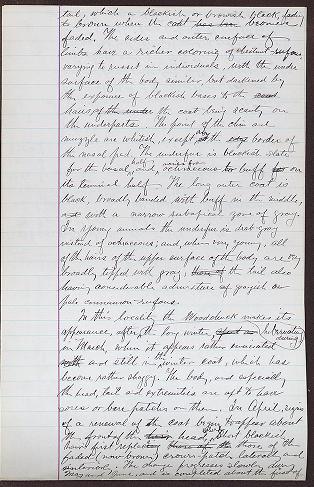 tail, which a blackish or brownish black, fading
to brown when the coat becomes
faded. The sides and outer surface of
limbs have a richer coloring of chestnut rufous,
varying to russet in individuals, with the under
surface of the body similar, but darkened by
the exposure of blackish bases to the
hairs, of the under the coat being scanty on
the underparts. The point of the chin and
muzzle are whitish, except at the edge border of
the nasal pad. The underfur is blackish slate
for the basal half and ochraceous to buff on
the terminal half. The long outer coat is
black, broadly banded with buff in the middle,
and with a narrow subapical zone of gray.
In young animals the underfur is drab gray
instead of ochraceous; and, when very young, all
of the hairs of the upper surface of the body are very
broadly tipped with gray, the tail also
having considerable admixture of grayish or
pale cinnamon-rufous.
In this locality the Woodchuck makes its
appearance, after the long winter (hibernating during)
in March, when it appears rather emaciated
and still in the winter coat, which has
become rather shaggy. The body, and especially
the head, tail and extremities are apt to have
sores or bare patches on them. In April, signs
of a renewal of the coat begin to appear about
the front of the head, short blackish
hairs first replacing those of the
faded (now brown) crown-patch laterally and
anteriorly. The change progresses slowly during
May and June, and is completed about the first of